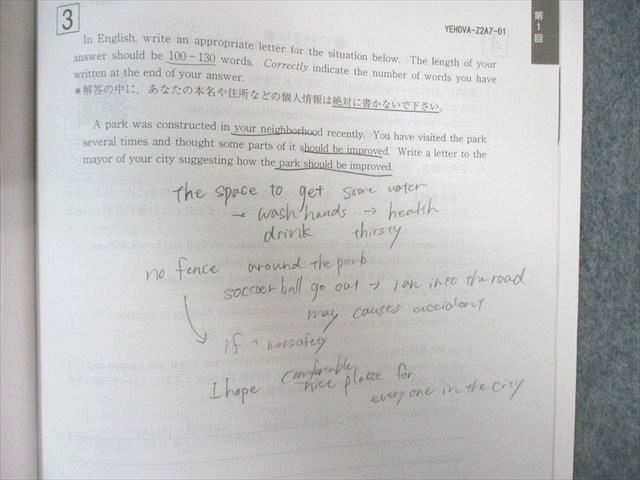 3
YEHDVA-Z2A7-01
第1回
In English, write an appropriate letter for the situation below. The length of your
answer should be 100－130 words. Correctly indicate the number of words you have
written at the end of your answer.
＊解答の中に、あなたの本名や住所などの個人情報は絶対に書かないで下さい。
A park was constructed in your neighborhood recently. You have visited the park
several times and thought some parts of it should be improved. Write a letter to the
mayor of your city suggesting how the park should be improved.
The space to get some water
→ wash hands → health
drink thirsty
no fence around the park
soccoer ball go out → ran into the road
may causes accident
if →
I hope comfortable
nice place for
everyone in the city